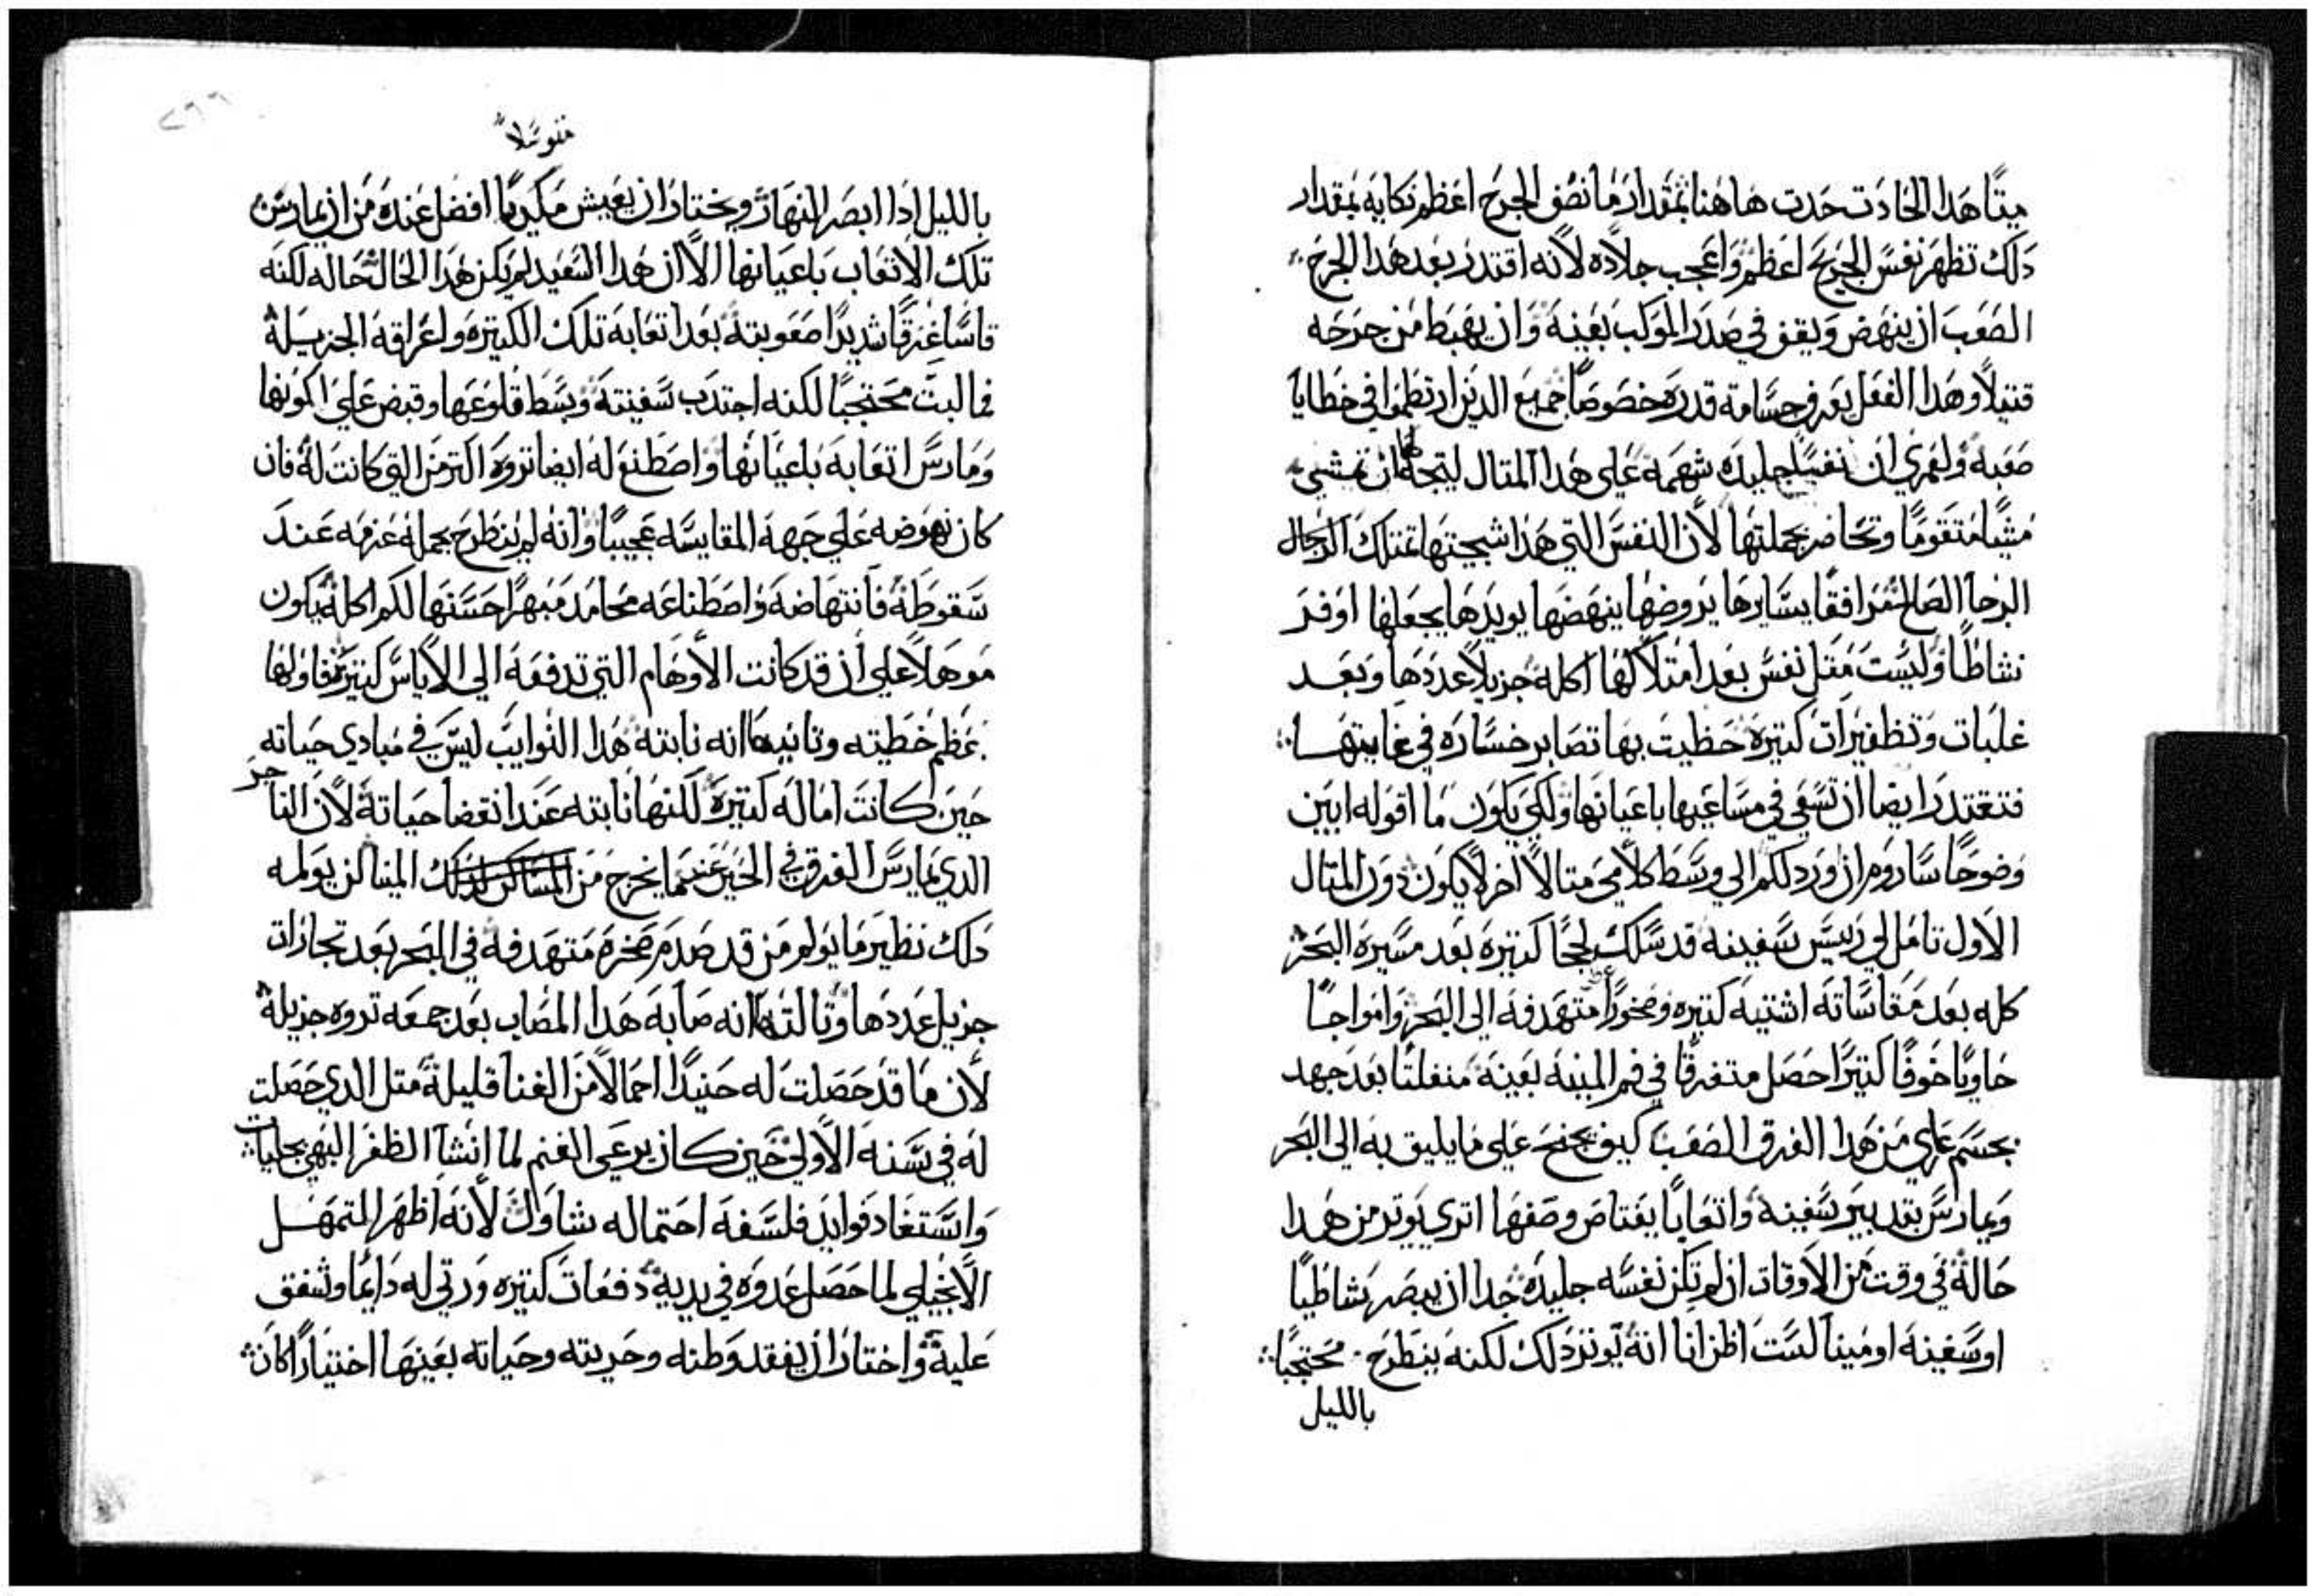 ميتًا هدا الحادت حدت هاهنا بمقدار ما نصف الجرح اعظم نكايه بمقدار
دلك تظهر نفس الجريح اعظم واعجب جلاده لانه اقتدر بعد هدا الجرح
الصعب ان ينهض ويقف في صدر الموكب بعينه وان يهبط من جرحه
قتيلاً وهدا الفعل يعرف جسامة قدره خصوصًا جميع الدين ارتطموا في خطايا
صعبه ولعمري ان نفسًا جليده شهمة علي هدا المتال ليتجه لها ان تمشي
مشيًا متقومًا وتحاضر بجملتها لأن النفس التي هدا شيجتها تمتلك الرجال
الرجا الصالح مرافقًا يسايرها يروضها ينهضها يويدها يجعلها اوفر
نشاطًا وليست متل نفس بعد امتلاكها اكله جزيلاً عددها وبعد
غلبات وتظفيرات كتيرة حظيت بها تصابر خساره في غايتها
فتقتدر ايضا ان تسعي في مساعيها باعيانها ولكي يكون ما اقوله ابين
وضوحًا ساروم ان ورد لكم الي وسط كلامي متالاً اخر لا يكون دون المتال
الاول تامل لي رييس سفينه قد سلك لججًا كتيره بعد مسيره البحر
كله بعد مقاساته اشتيه كتيره وصخورًا متهدفه الي البحر وامواجًا
حاويًا خوفًا كتيرًا حصل متغرقًا في فم المينه بعينه منفلتًا بعد جهد
بجسم عاري من هدا الغرق الصعب كيف يجنح علي ما يليق به الي البحر
ويمارس بتدبير سفينه واتعابًا يعتاص وصفها اتري يوتر من هدا
حالة في وقت من الاوقات ان لم تكن نفسه جليده جدا ان يبصر شاطيًا
او سفينه او مينا لست اظن انا انه يوتر دلك لكنه ينطرح محتجبًا
بالليل
متوسلاً
بالليل ادا ابصر النهار ويختار ان يعيش مكديًا افضل عنده من ان يمارس
تلك الاتعاب باعيانها الا ان هدا السعيد لم يكن هدا الحال حاله لكنه
قاسا غرقًا شديدًا صعوبته بعد اتعابه تلك الكتيره واعراقه الجزيلة
فما لبت محتجبًا لكنه اجتدب سفينته وبسط قلوعها وقبض علي اكمونها
ومارس اتعابه باعيانها واصطنع له ايضا تروه اكتر من التي كانت له فان
كان نهوضه علي جهة المقايسه عجيبًا وانه لم ينطرح بجملة عزمه عند
سقوطه فانتهاضه واصطناعه محامد مبهرًا حسنها لكم اكله يكون
موهلاً علي ان قد كانت الأوهام التي تدفعه الي الاياس كتيره فاولها
عظم خطيته وتانيها انه نابته هدا النوايب ليس في مبادي حياته
حين كانت اماله كتيره لكنها نابته عند انقضا حياته لان التاجر
الدي يمارس الغرق في الحين عندما يخرج من المينا لن يولمه
دلك نظير ما يولم من قد صدم صخره متهدفه في البحر بعد تجارات
جزيل عددها وتالتها انه صابه هدا المصاب بعد جمعه تروه جزيلة
لأن ما قد حصلت له حنيدًا احمالاً من الغنا قليلة متل الدي حصلت
له في سنه الأولي حين كان يرعي الغنم لما انشا الظفر البهي بجليات
واستفاد فوايد فلسفه احتماله شاوال لأنه اظهر التمهل
الانجيلي لما حصل عدوه في يديه دفعات كتيره ورتي له دايمًا وشفق
عليه واختار ان يفقد وطنه وحريته وحياته بعينها اختيارًا كان